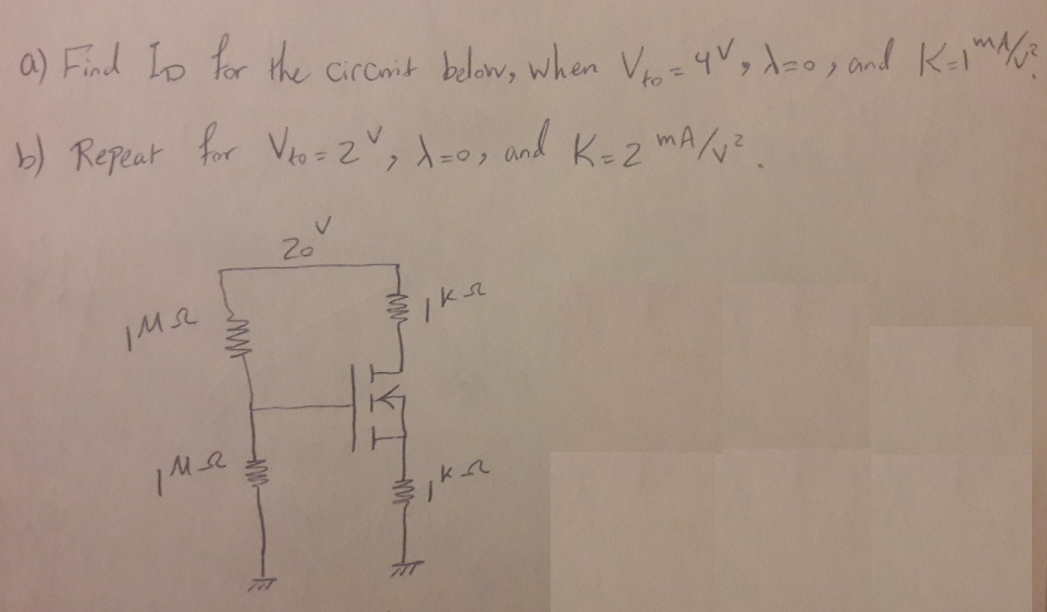 a) Find I_D for the circuit below, when V_to = 4V, λ=0, and K=1 mA/V².
b) Repeat for V_to = 2V, λ=0, and K=2 mA/V².
20V
1KΩ
1MΩ
1MΩ
1KΩ